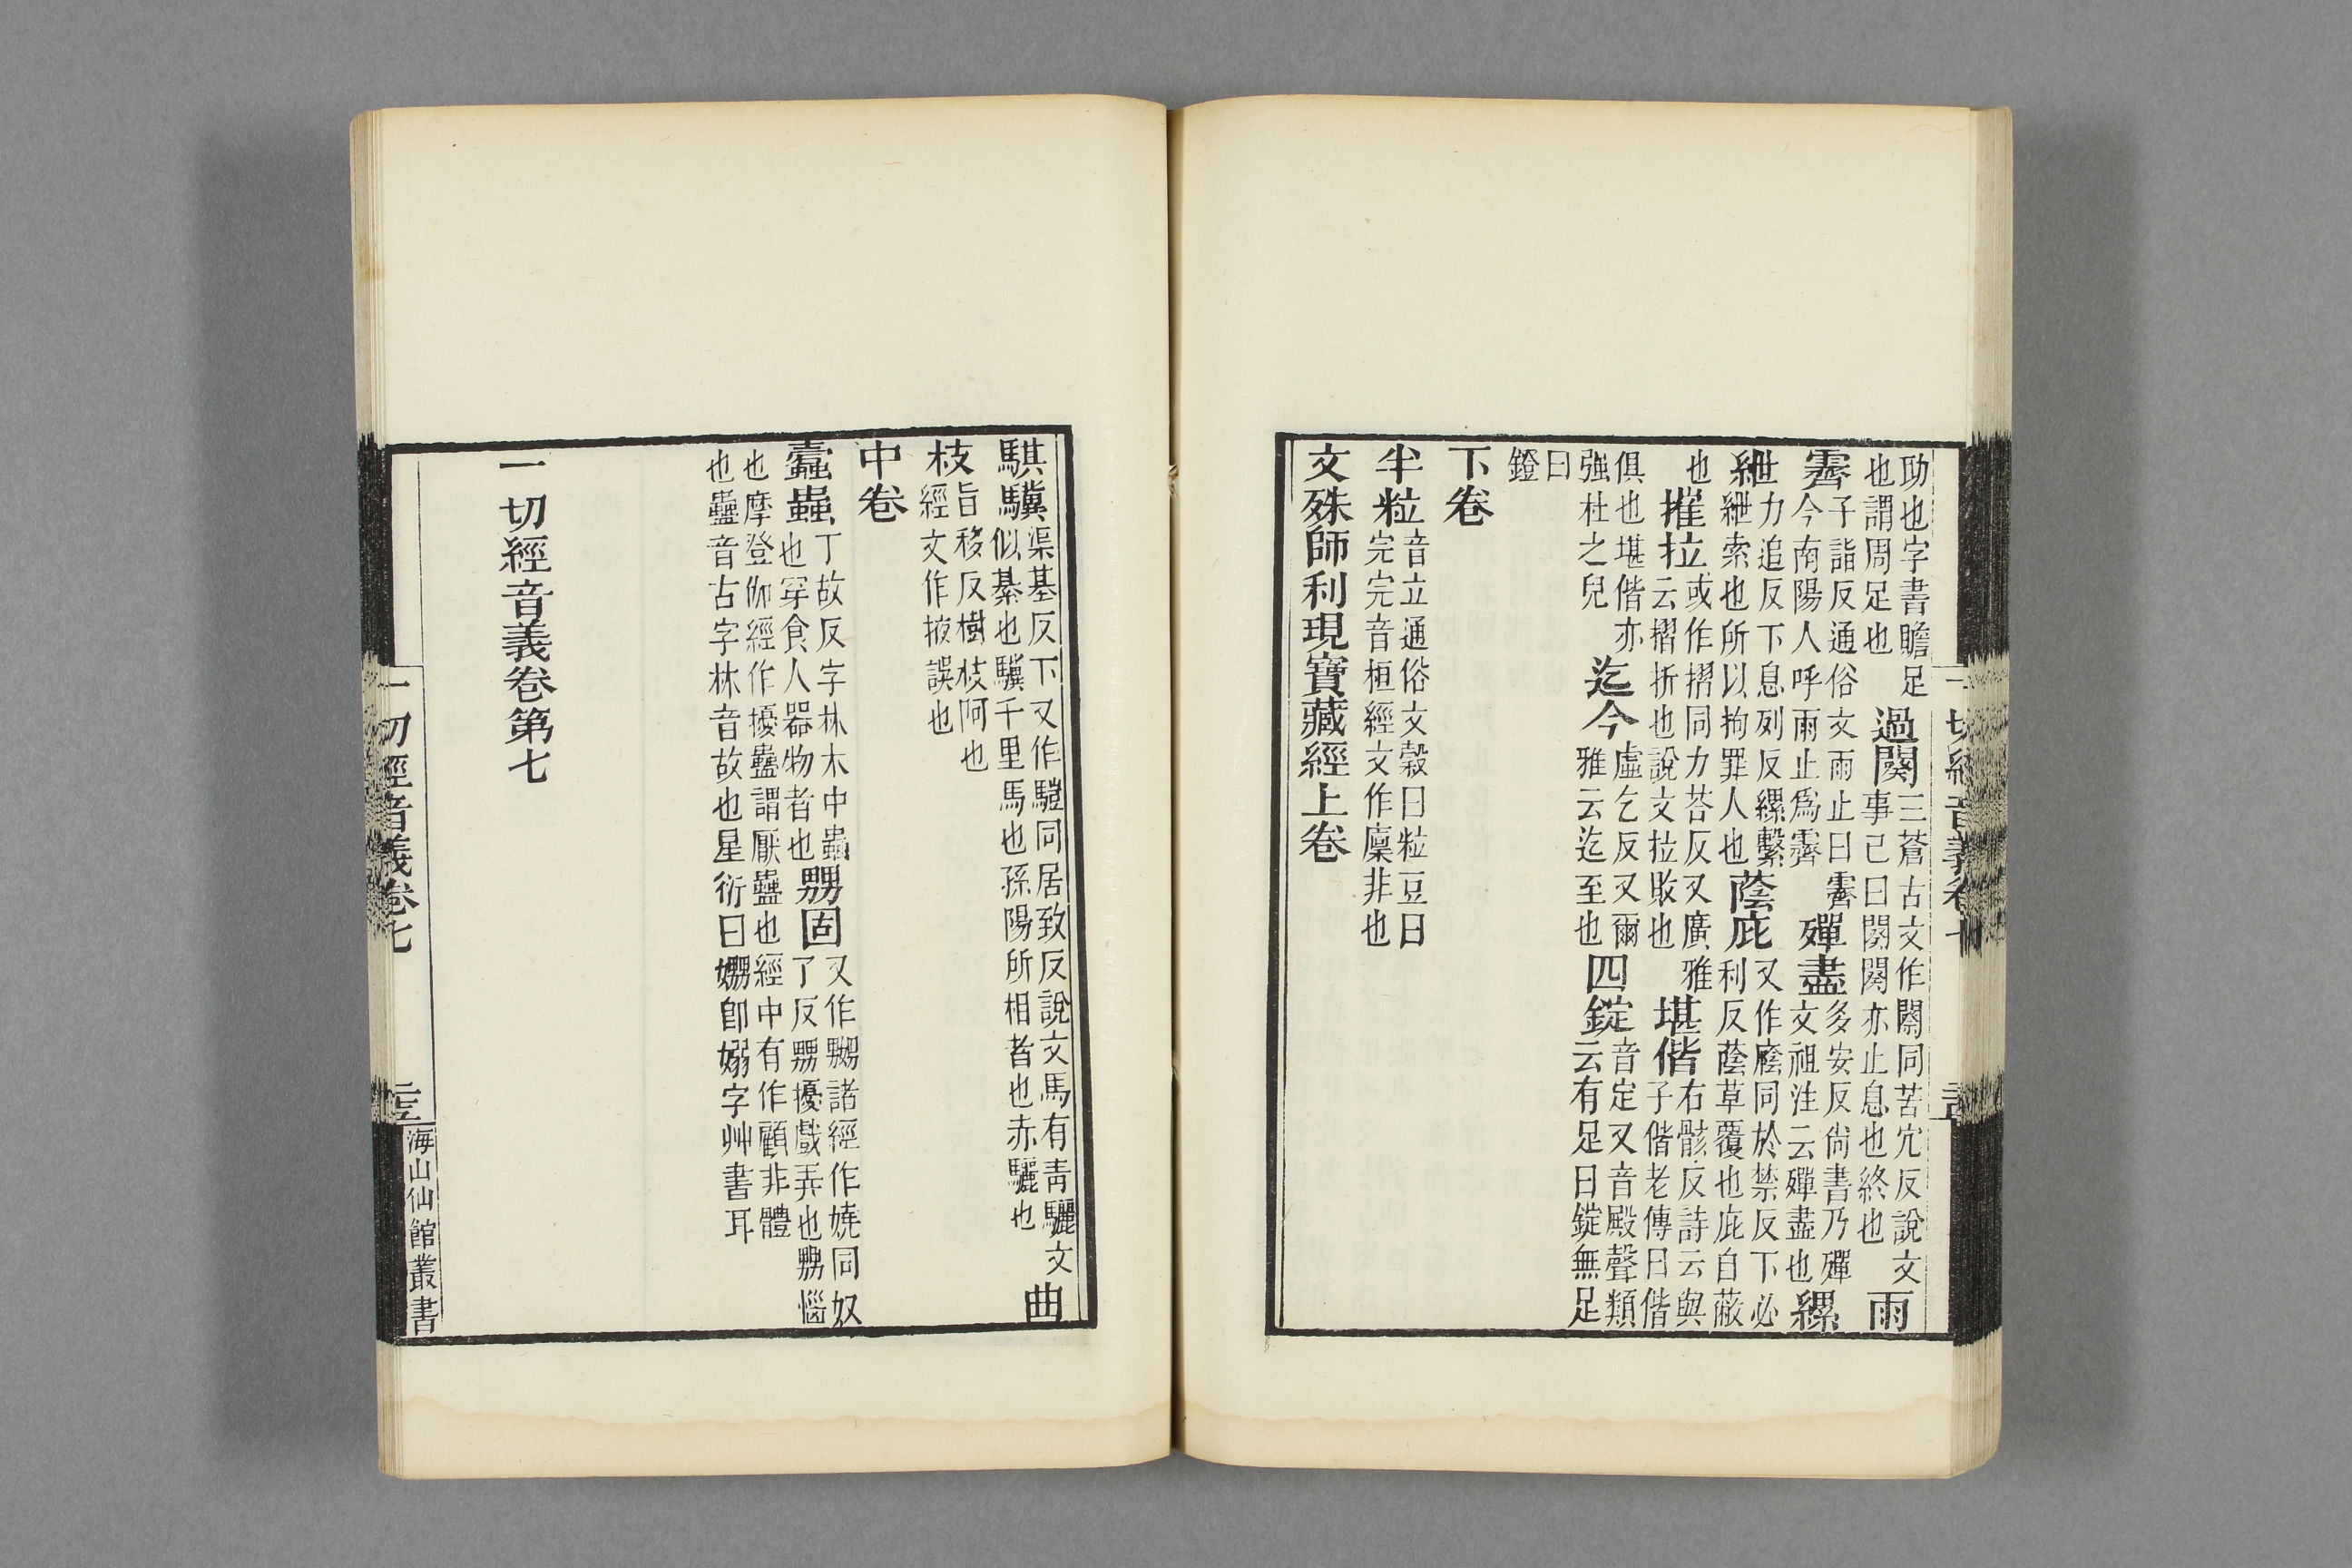 㓛也字書贍足
也謂周足也
過闋
三蒼古文作闋同苦穴反說文
事已曰闋闋亦止息也終也
雨
霽
子詣反通俗文雨止曰霽
今南陽人呼雨止爲霽
殫盡
多安反尙書乃殫
文祖注云殫盡也
縲
紲
力追反下息列反縲繫
紲索也所以拘罪人也
蔭庇
又作廕同於禁反下必
利反蔭草覆也庇自蔽
也
摧拉
或作摺同力荅反又廣雅
云摺折也說文拉敗也
堪偕
右骸反詩云與
子偕老傳曰偕
俱也堪偕亦
强杜之皃
迄今
虛乞反又爾
雅云迄至也
四錠
音定又音殿聲類
云有足曰錠無足
曰
鐙
下卷
半粒
音立通俗文穀曰粒豆曰
完完音桓經文作廩非也
文殊師利現寶藏經上卷
騏驥
渠基反下又作驥同居致反說文馬有靑驪文
似綦也驥千里馬也孫陽所相者也赤驪也
曲
枝
旨移反樹枝阿也
經文作掖誤也
中卷
蠧蟲
丁故反字林木中蟲
也穿食人器物者也
嬲固
又作嬲諸經作嬈同奴
了反嬲擾戲弄也嬲惱
也摩登伽經作擾蠱謂厭蠱也經中有作顧非體
也蠱音古字林音故也星衍曰嬲卽嫋字艸書耳
一切經音義卷第七
一切經音義卷七
海山仙館叢書